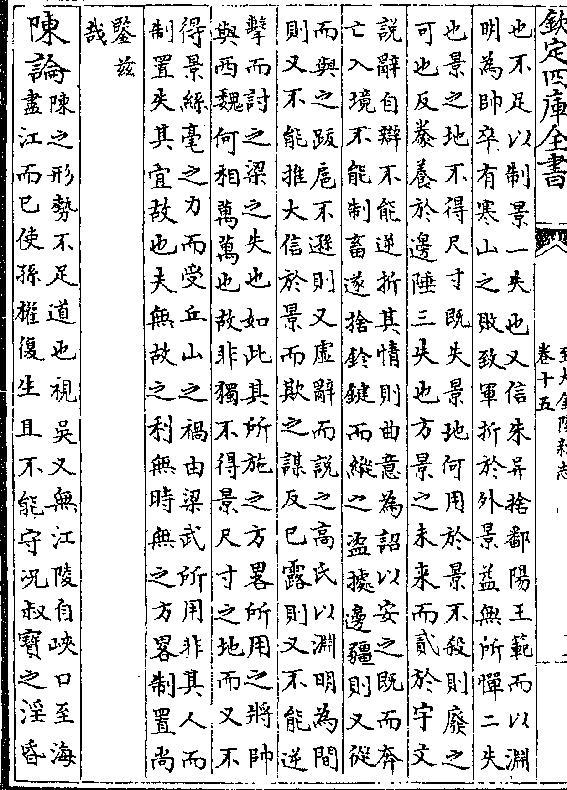 欽定四庫全書
至大金陵新志
卷十五
也不足以制景一失也又信朱异捨鄱陽王範而以淵
明為帥卒有寒山之敗致軍折於外景益無所憚二失
也景之地不得尺寸既失景地何用於景不殺則廢之
可也反豢養於邊陲三失也方景之未来而貳於宇文
説辭自辯不能逆折其情則曲意為詔以安之既而奔
亡入境不能制畜遂捨鈐鍵而縱之盜據邊疆則又從
而與之跋扈不遜則又虚辭而說之高氏以淵明為間
則又不能推大信於景而欺之謀反已露則又不能逆
擊而討之梁之失也如此其所施之方畧所用之將帥
與西魏何相萬萬也故非獨不得景尺寸之地而又不
得景絲毫之力而受丘山之禍由梁武所用非其人而
制置失其宜故也夫無故之利無時無之方畧制置尚
鑒兹
哉
陳論
陳之形勢不足道也視吳又無江陵自峽口至海
盡江而已使孫權復生且不能守况叔寳之淫昏